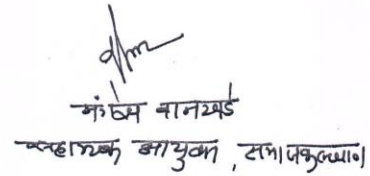 मंगेश वानखडे
सहाय्यक आयुक्त, समाजकल्याण